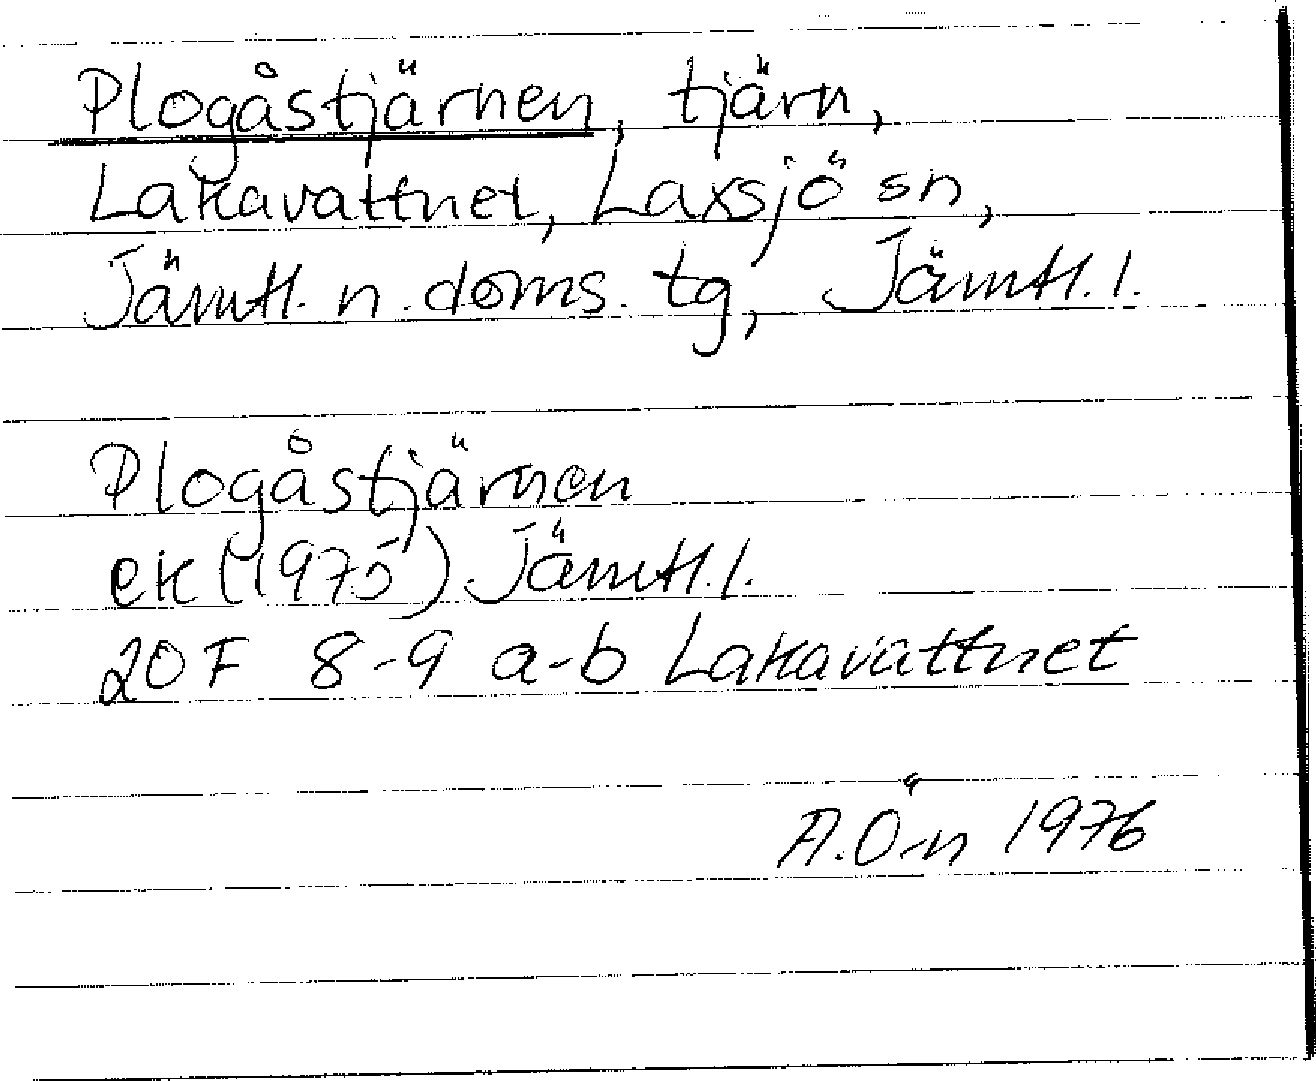 Plogåstjärnen, tjärn,
Lakavattnet, Laxsjö sn,
Jämtl. n. doms. tg, Jämtl. l.
Plogåstjärnen
ek (1975) Jämtl. l.
20 F 8-9 a-b Lakavattnet
A. Ö-n 1976